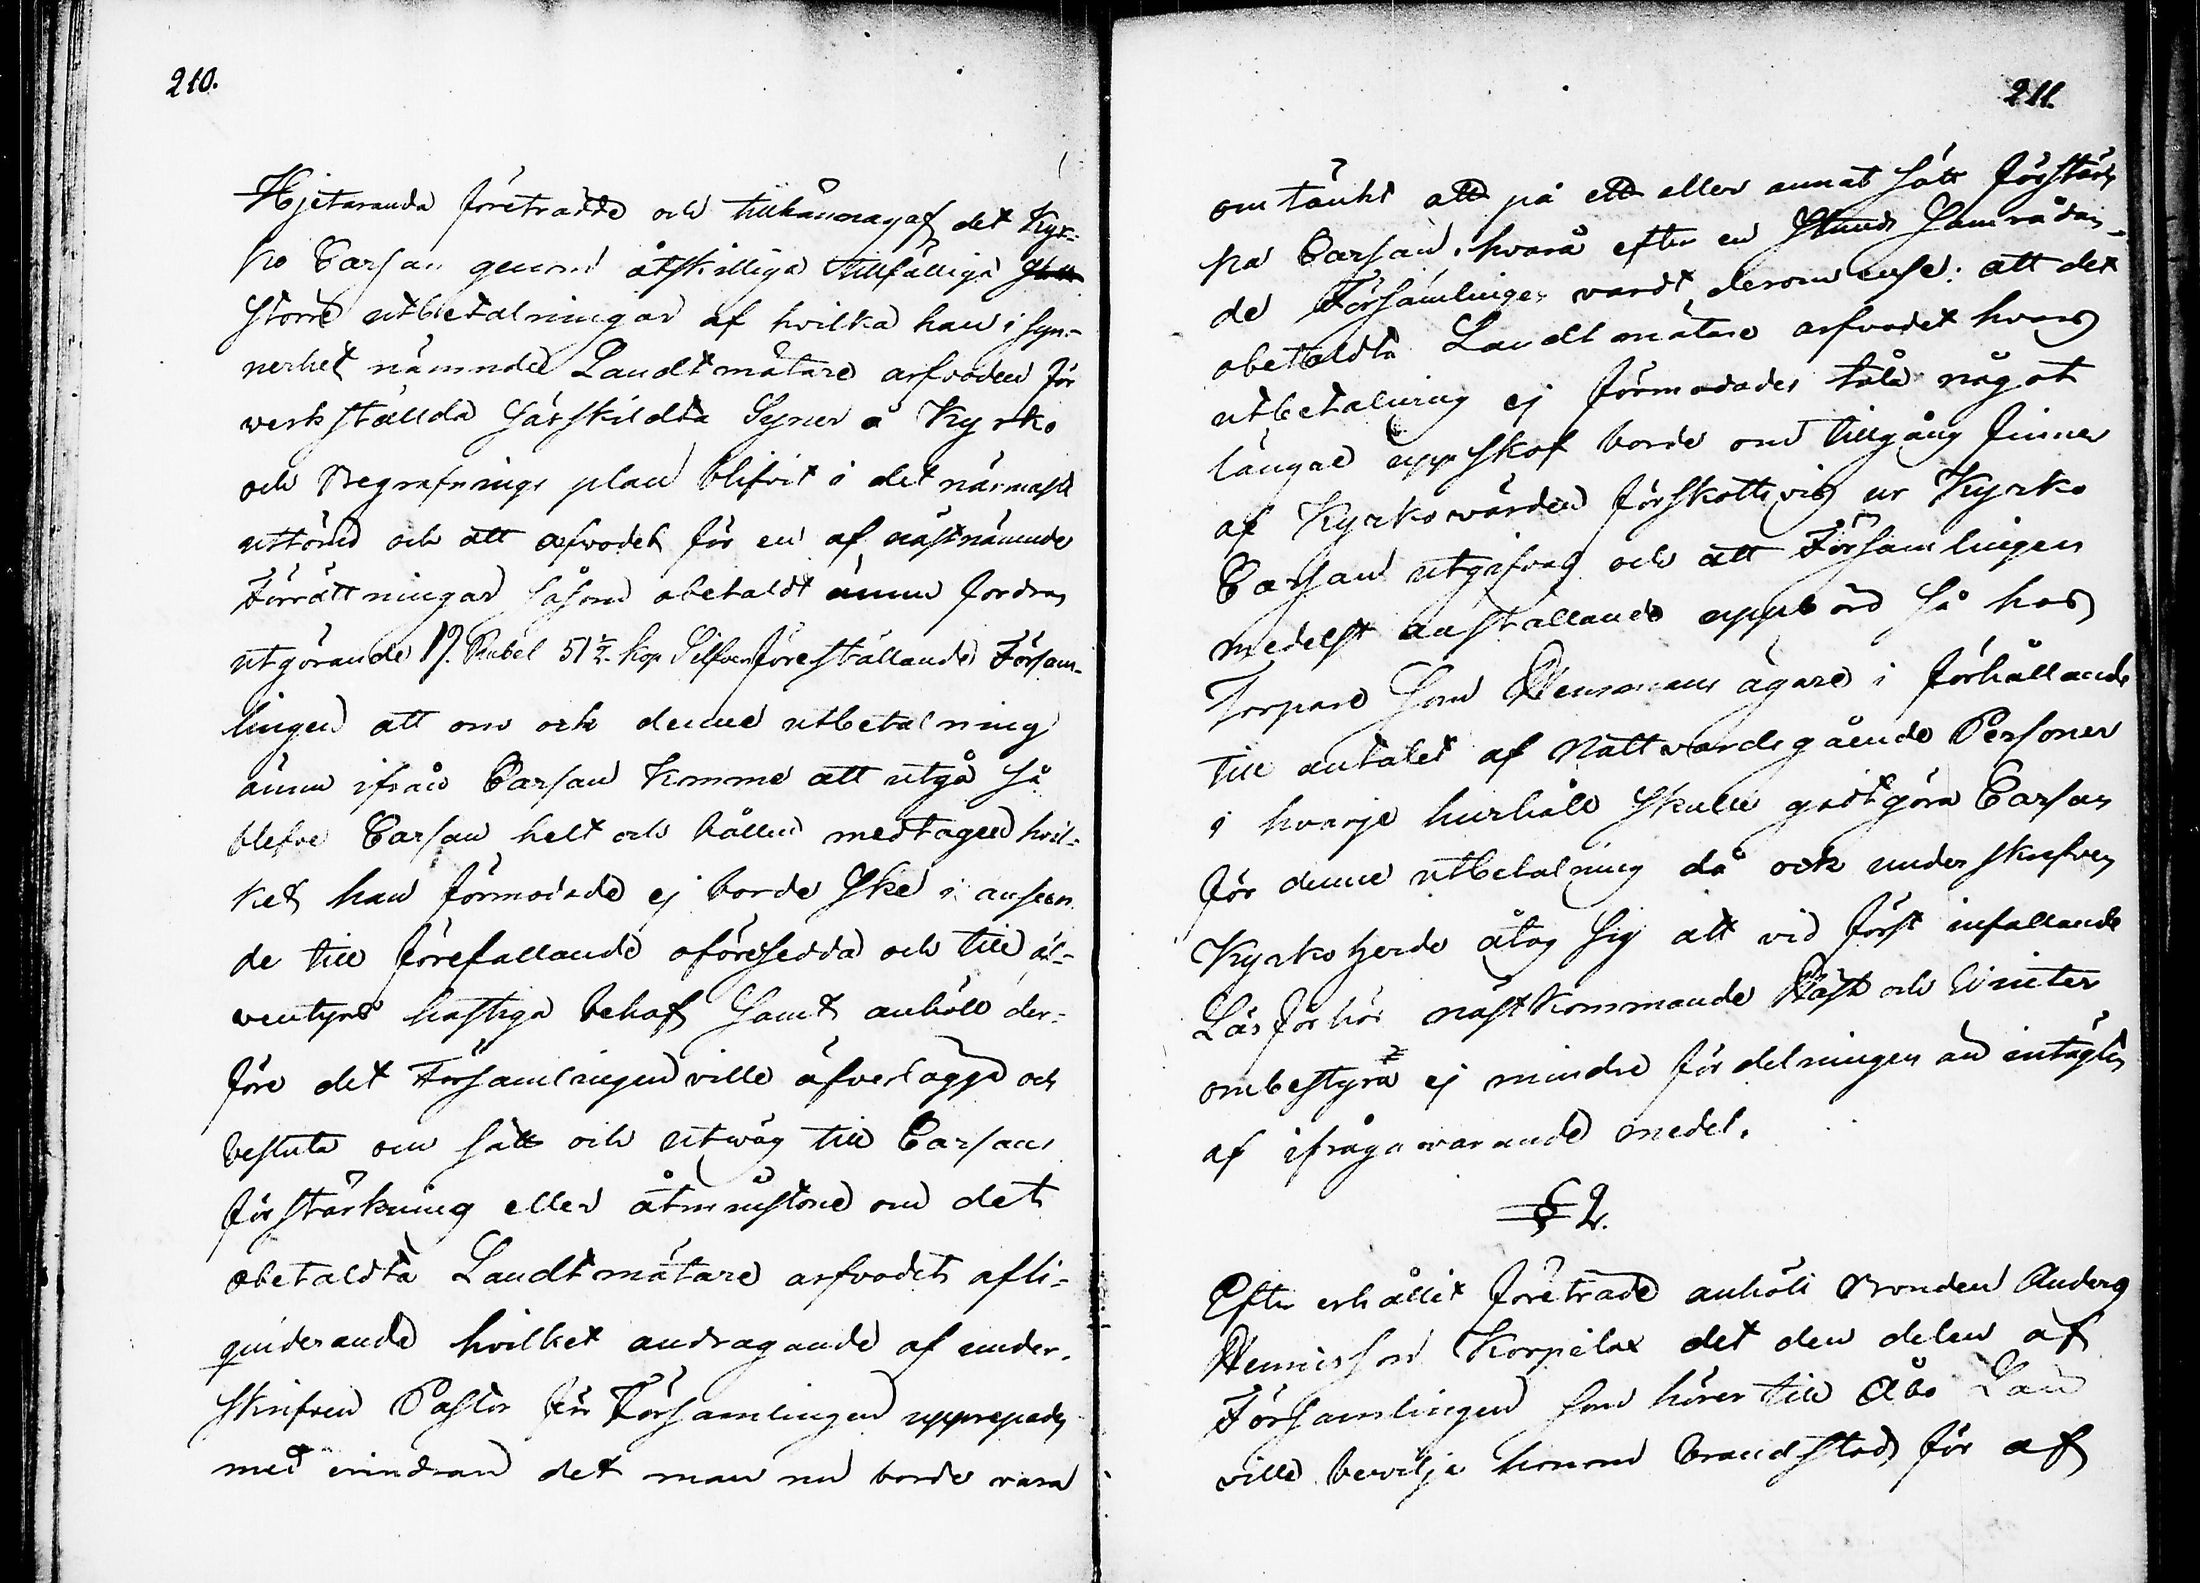 210.
Hjetaranda företrädde och tillkännagaf det Kyr-
ko Cassan genom åtskilliga tillfälliga
större utbetalningar af hvilka han i syn-
nerhet nämnde Landtmätare arfvoden för
verkställda särskildta Syner å Kyrko
och Begrafnings plan blifvit i det närmaste
uttömd och att arfvodet för en af nästnämnde
Förrättningar såsom obetaldt ännu fordras
utgörande 17. Rubel 51½ kop Silfver föreställande Försam-
lingen att om och denne utbetalning
ännu ifrån Cassan komme att utgå så
blefve Cassan helt och hållen medtagen hvil-
ket han förmodade ej borde ske i anseen
de till förefallande oföresedda och till äf-
ventyrs hastiga behof samt anhöll der-
före det Församlingen ville öfverlägga och
besluta om sätt och utwäg till Cassans
förstärkning eller åtminstone om det
obetaldta Landtmätare arfvodets afli-
qviderande hvilket andragande af under-
skrifven Pastor för Församlingen upprepades
med erindran det man nu borde vara
211.
omtänkt att på ett eller annat sätt förstär
ka Cassan, hvarå efter en stunds samrådan-
de Församlingen vardt derom ense: att det
obetaldta Landtmätare arfvodet hvars
utbetalning ej förmodades tåla något
längre uppskof borde om tillgång finnes
af Kyrkovärden förskottsvis ur Kyrko
Cassan utgifvas och att Församlingen
medelst anställande uppbörd så hos
Torpare som Hemmans ägare i förhållande
till antalet af Nattvardsgående Personer
i hvarje hushåll skulle godtgöra Cassan
för denne utbetalning då och underskrifven
Kyrkoherde åtog sig att vid först infallande
Läsförhör nästkommande Höst och Winter
ombestyra ej mindre fördelningen än intägten
af ifrågavarande medel.
§ 2.
Efter erhållit företräde anhöll Bonden Anders
Henricsson Korpelax det den delen af
Församlingen som hörer till Åbo Län
ville bevilja honom brandstod för af